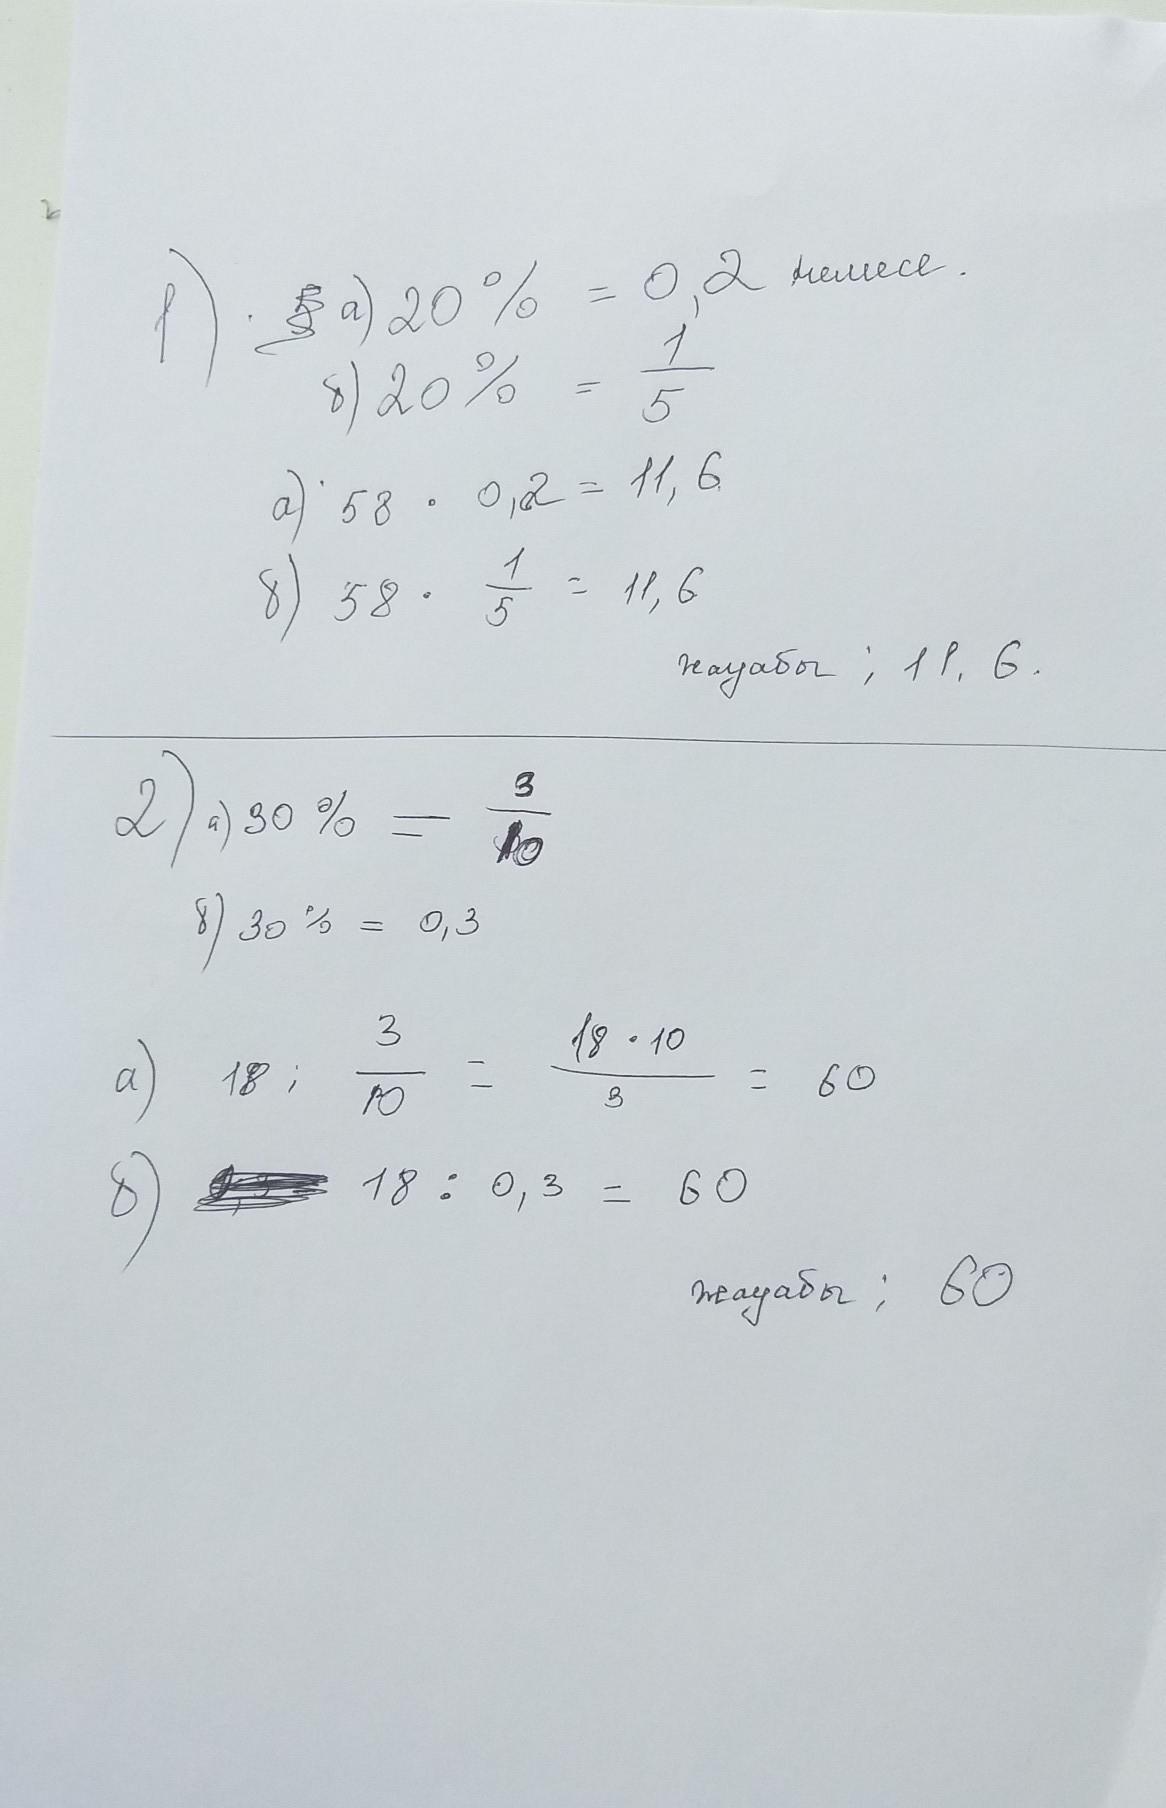 1) а) 20 % = 0,2 немесе.
б) 20 % = 1/5
а) 58 · 0,2 = 11,6
б) 58 · 1/5 = 11,6
жауабы ; 11,6.
2) а) 30 % = 3/10
б) 30 % = 0,3
а) 18 ; 3/10 = 18 · 10/3 = 60
б) 18 : 0,3 = 60
жауабы ; 60